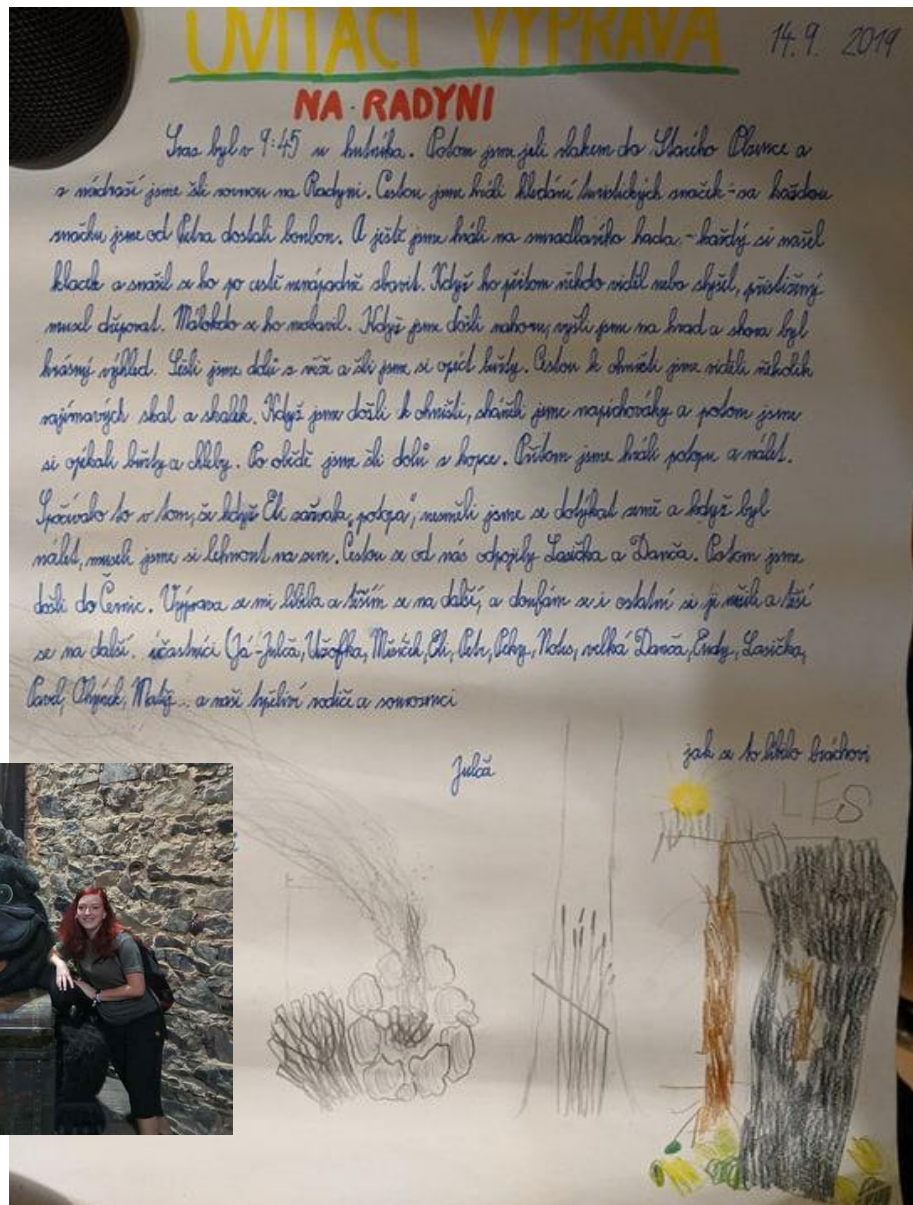 UVÍTACÍ VÝPRAVA
14.9. 2019
NA RADYNI
Sraz byl v 9:45 u hutníka. Potom jsme jeli vlakem do Starého Plzence a
z nádraží jsme šli rovnou na Radyni. Cestou jsme hráli hledání turistických značek - za každou
značku jsme od Petra dostali bonbon. A ještě jsme hráli na smradlavého hada - každý si našel
klacek a snažil se ho po cestě nenápadně zbavit. Když ho přitom někdo viděl nebo slyšel, přistižený
musel dřepovat. Málokdo se ho nezbavil. Když jsme došli nahoru, vyšli jsme na hrad a shora byl
krásný výhled. Sešli jsme dolů z věže a šli jsme si opéct buřty. Cestou k ohništi jsme viděli několik
zajímavých skal a skalek. Když jsme došli k ohništi, sháněli jsme napichováky a potom jsme
si opékali buřty a chleby. Po obědě jsme šli dolů z kopce. Přitom jsme hráli potopu a nálet.
Spočívalo to v tom, že když Eli zařvala „potopa", nesměli jsme se dotýkat země a když byl
nálet, museli jsme si lehnout na zem. Cestou se od nás odpojily Lasička a Danča. Potom jsme
došli do Černic. Výprava se mi líbila a těším se na další, a doufám že i ostatní si ji užili a těší
se na další. účastníci (Já - Julča, Užofka, Měsíček, Eli, Petr, Peky, Notes, velká Danča, Endy, Lasička,
Pavel, Matěj... a naši trpěliví rodiče a sourozenci
Julča
jak se to líbilo bráchovi
LES